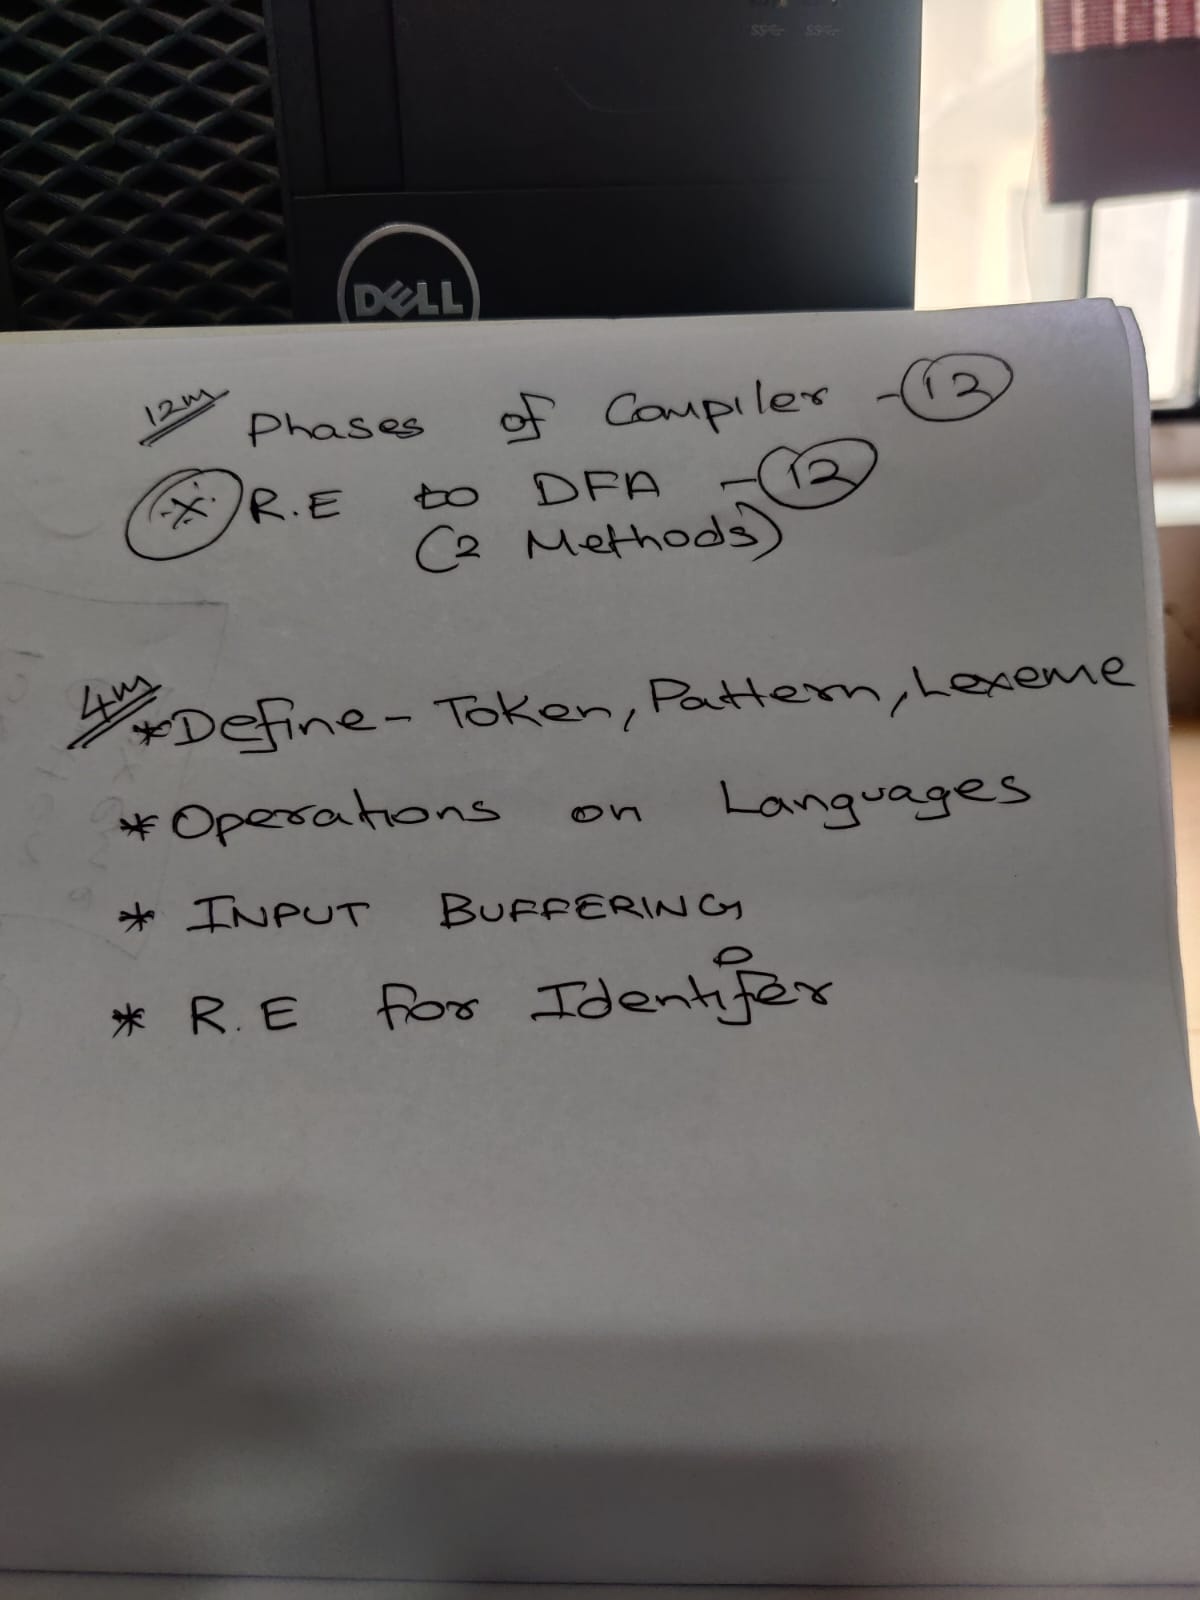 SS SS
DELL
12m Phases of Compiler - 12
* R.E to DFA - 12
(2 Methods)
4m
* Define - Token, Pattern, Lexeme
* Operations on Languages
* INPUT BUFFERING
* R.E for Identifer